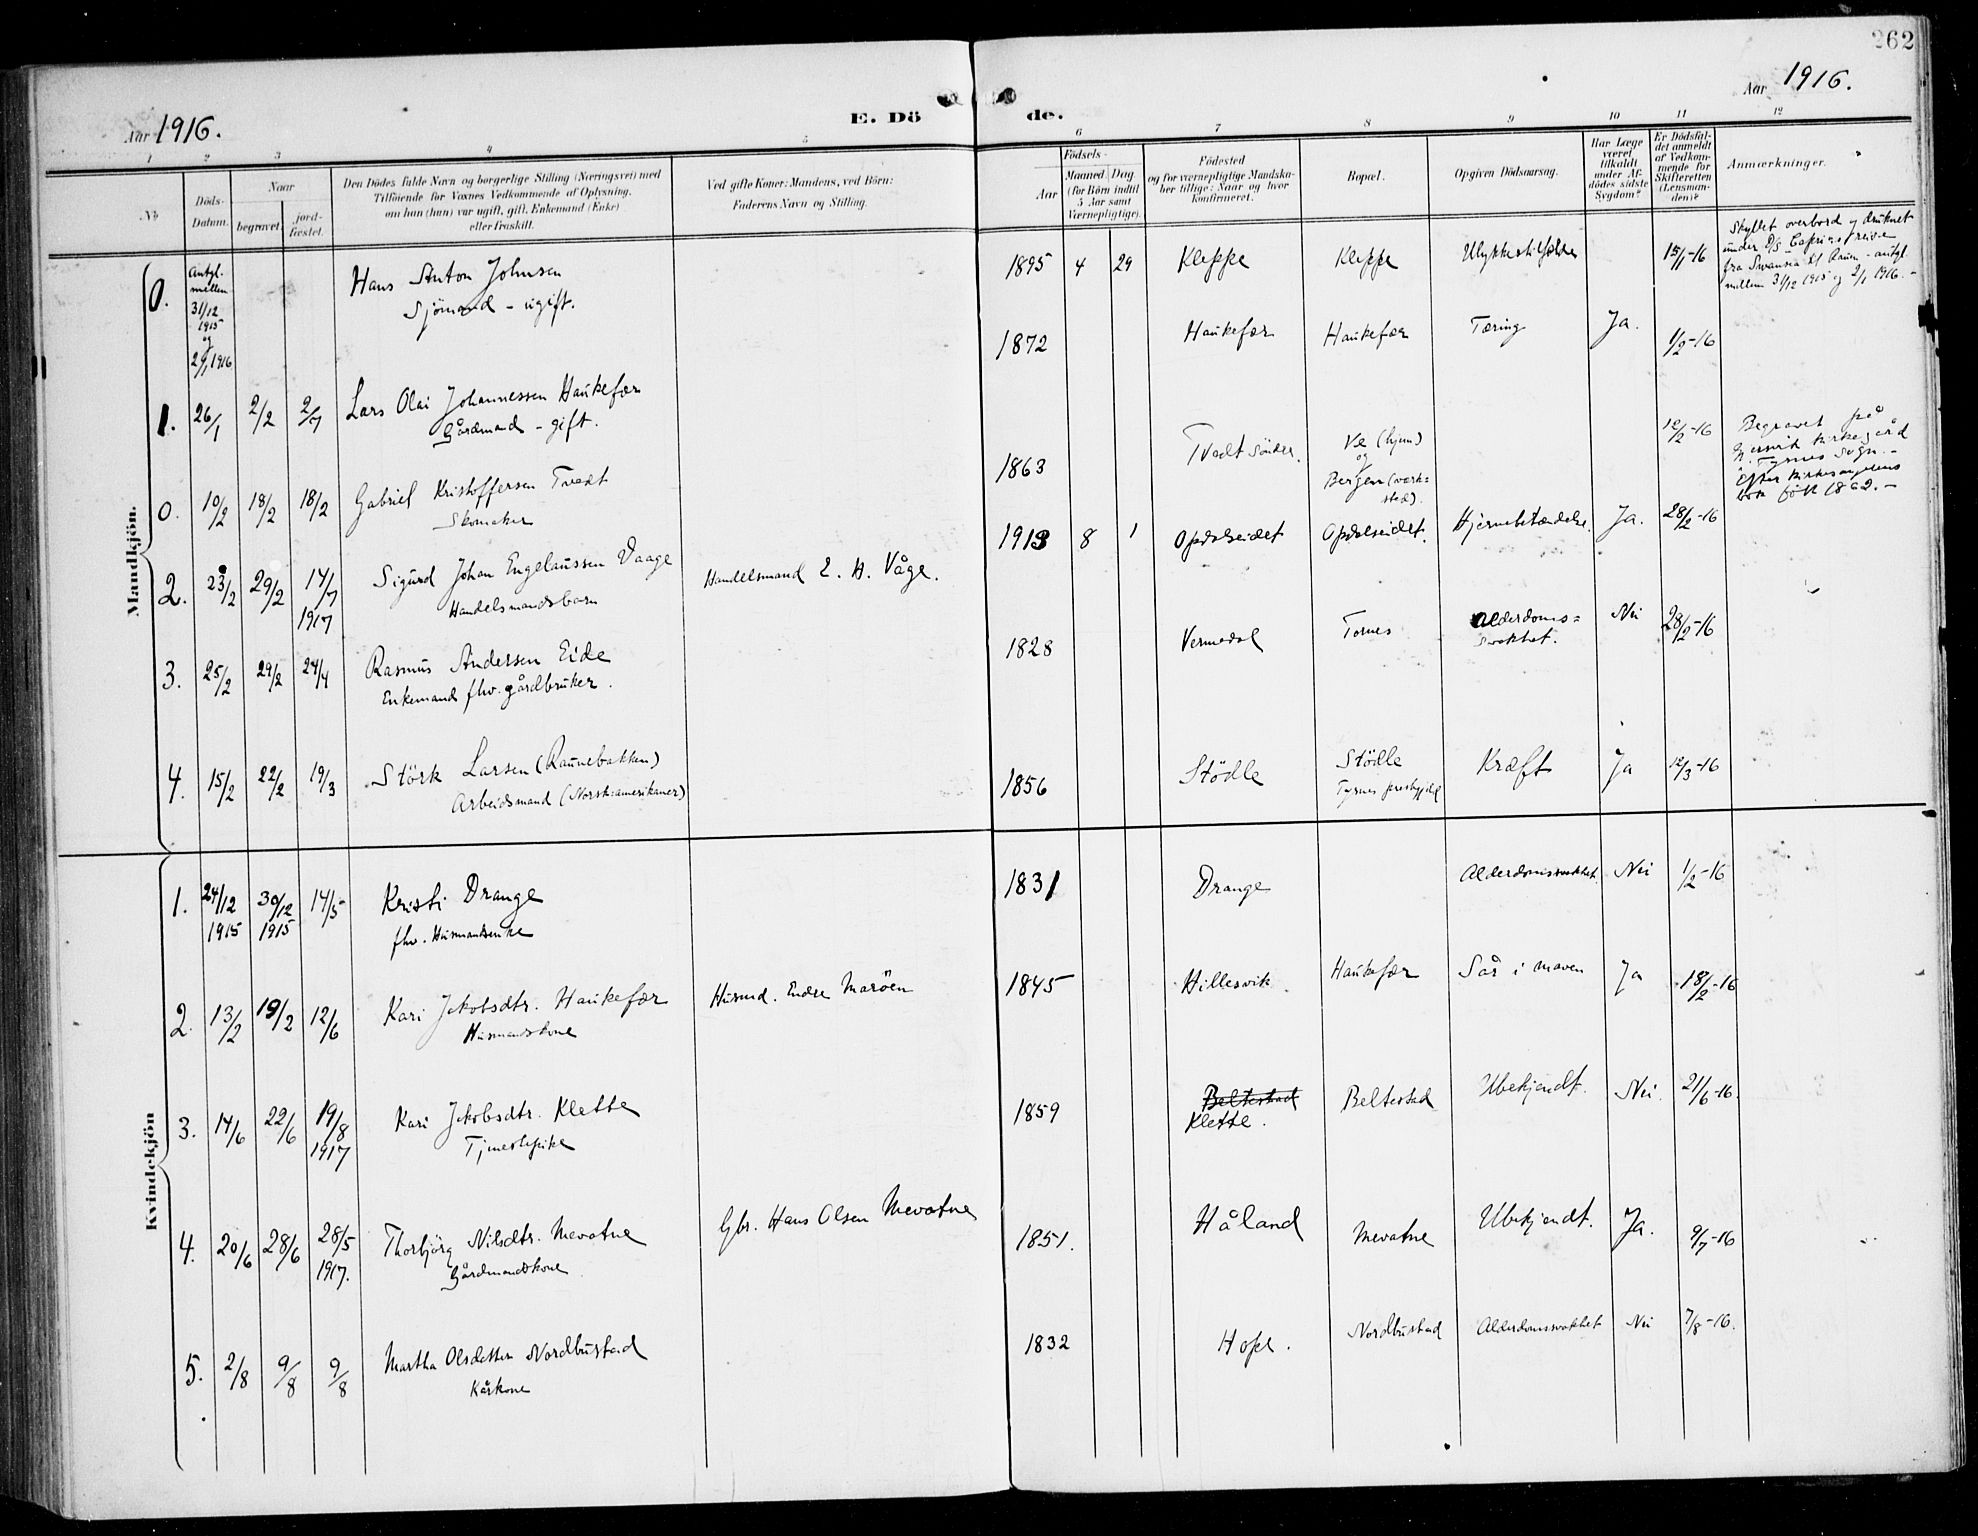 262
Aar 1916.
E. Dö
de.
Aar 1916.
1 2 3 4 5 6 7 8 9 10 11 12
No
Döds-
Datum.
Naar
begravet.
jord-
fæstet.
Den Dödes fulde Navn og borgerlige Stilling (Næringsvei) med
Tilföiende for Voxnes Vedkommende af Oplysning,
om han (hun) var ugift, gift, Enkemand (Enke)
eller fraskilt.
Ved gifte Koner: Mandens, ved Börn:
Faderens Navn og Stilling.
Födsels-
Aar
Maaned Dag
(for Börn indtil
5 Aar samt
Værnepligtige).
Födested
og for værnepligtige Mandska-
ber tillige: Naar og hvor
konfirmeret.
Bopæl.
Opgiven Dödsaarsag.
Har Læge
været
tilkaldt
under Af-
dödes sidste
Sygdom?
Er Dödsfal-
det anmeldt
af Vedkom-
mende for
Skifteretten
(Lensman-
den)?
Anmærkninger.
Mandkjön.
0. Antgl. mellem 31/12 1915 og 2/1 1916
Hans Anton Johnsen
Sjömand - ugift.
1895 4 29 Kleppe Kleppe Ulykkestilfælde 15/1-16
Skyllet overbord og druknet
under D/S Caprino reise
fra Swansea til Rouen - antgl.
mellem 31/12 1915 og 2/1 1916. -
1. 26/1 2/2 2/7 Lars Olai Johannessen Haukefær
Gårdmand - gift.
1872 Haukefær Haukefær Tæring Ja. 1/2-16
0. 10/2 18/2 18/2 Gabriel Kristoffersen Tvedt
Skomaker
1863 Tvedt söndre. Ve (hjem)
og
Bergen (værk-
sted).
12/2-16
Begravet på
kirkegård
i Tysnes sogn. -
Efter kirkesangerens
bok född 1862. -
2. 23/2 29/2 14/7 1917 Sigurd Johan Engelaussen Vaage
Handelsmandsbarn
Handelsmand E. H. Våge.
1913 8 1 Opdalseidet Opdalseidet. Hjernebetændelse. Ja. 28/2-16
3. 25/2 29/2 24/4 Rasmus Andersen Eide
Enkemand fhv. gårdbruker.
1828 Vermedal Tornes Alderdoms=
svakhet. Nei 28/2-16
4. 15/2 22/2 19/3 Störk Larsen (Raunebakken)
Arbeidsmand (Norsk-amerikaner)
1856 Stödle Stödle
Tysnes prestgjeld
Kræft Ja 12/3-16
Kvindekjön
1. 24/12 1915 30/12 1915 14/5 Kristi Drange
fhv. Husmandsenke
1831 Drange Alderdomssvakhet. Nei 1/2-16
2. 13/2 19/2 12/6 Kari Jakobsdtr. Haukefær
Husmandskone
Husmd. Endre Maröen
1845 Hillesvik Haukefær Sår i maven Ja 18/2-16
3. 14/6 22/6 19/8 1917 Kari Jakobsdtr. Klette
Tjenestepike
1859 Beltestad
Klette.
Beltestad Ubekjendt. Nei. 21/6-16.
4. 20/6 28/6 28/5 1917. Thorbjörg Nilsdtr. Mevatne
Gårdmandskone
Gbr. Hans Olsen Mevatne
1851. Håland Mevatne Ubekjendt. Ja. 9/7-16
5. 2/8 9/8 9/8 Martha Olsdatter Nordbustad
Kårkone
1832 Hope. Nordbustad Alderdomssvakhet Nei 7/8-16.